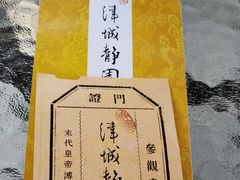 津城静园
門證
津城靜
參觀
末代皇帝溥